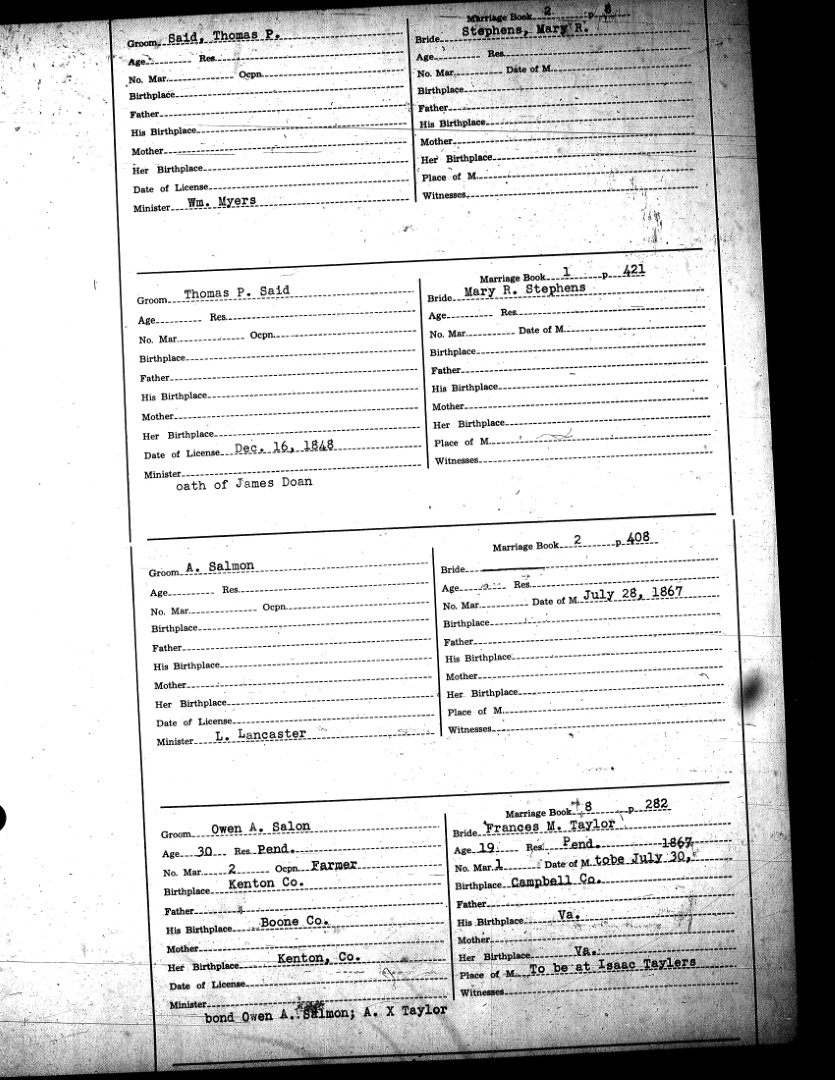 Marriage Book 2 p. 8
Groom Said, Thomas P. Bride Stephens, Mary R.
Age Res. Age Res.
No. Mar. Ocpn. No. Mar. Date of M.
Birthplace Birthplace
Father Father
His Birthplace His Birthplace
Mother Mother
Her Birthplace Her Birthplace
Date of License Place of M.
Minister Wm. Myers Witnesses
Marriage Book 1 p. 421
Groom Thomas P. Said Bride Mary R. Stephens
Age Res. Age Res.
No. Mar. Ocpn. No. Mar. Date of M.
Birthplace Birthplace
Father Father
His Birthplace His Birthplace
Mother Mother
Her Birthplace Her Birthplace
Date of License Dec. 16, 1848 Place of M.
Minister Witnesses
oath of James Doan
Marriage Book 2 p. 408
Groom A. Salmon Bride
Age Res. Age Res.
No. Mar. Ocpn. No. Mar. Date of M. July 28, 1867
Birthplace Birthplace
Father Father
His Birthplace His Birthplace
Mother Mother
Her Birthplace Her Birthplace
Date of License Place of M.
Minister L. Lancaster Witnesses
Marriage Book 8 p. 282
Groom Owen A. Salon Bride Frances M. Taylor
Age 30 Res. Pend. Age 19 Res. Pend. 1867
No. Mar. 2 Ocpn. Farmer No. Mar. 1 Date of M. tobe July 30,
Birthplace Kenton Co. Birthplace Campbell Co.
Father Father
His Birthplace Boone Co. His Birthplace Va.
Mother Mother
Her Birthplace Kenton, Co. Her Birthplace Va.
Date of License Place of M. To be at Isaac Taylers
Minister Witnesses
bond Owen A. Salmon; A. X Taylor